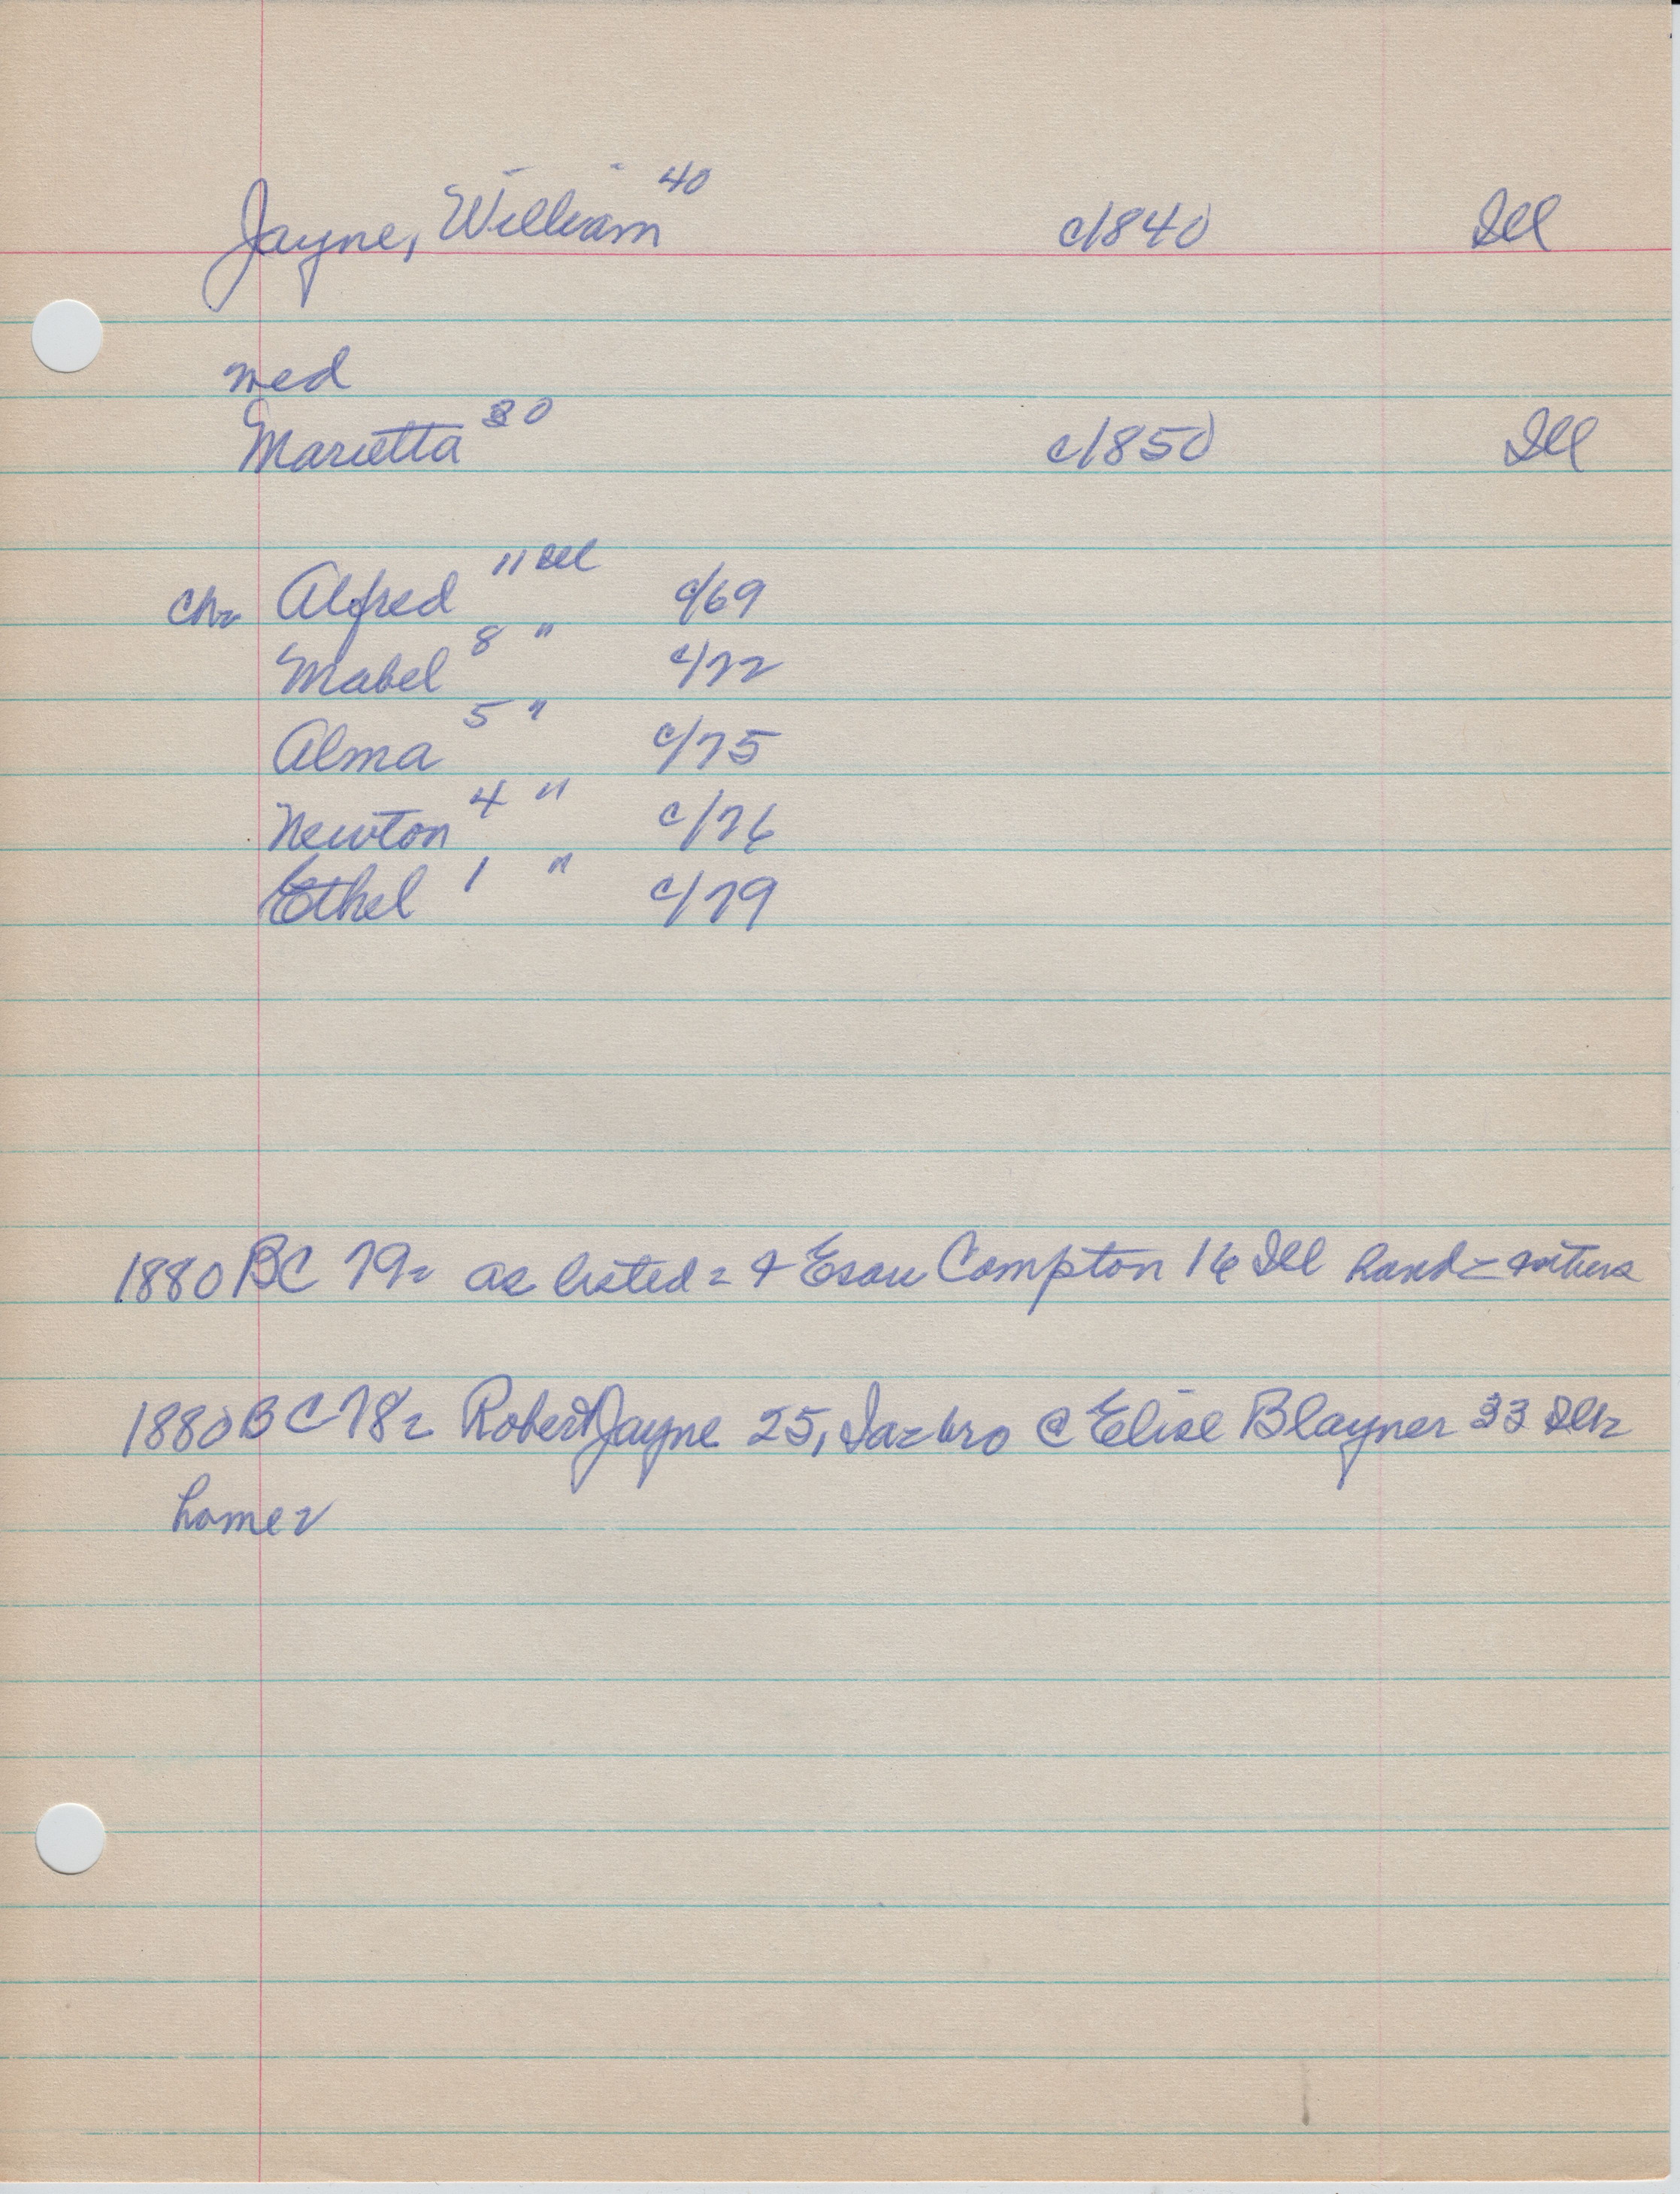 Jayne, William 40 c/1840 Ill
med
Marietta 30 c/1850 Ill
Ch- Alfred 11 Ill c/69
Mabel 8 " c/72
Alma 5 " c/75
Newton 4 " c/76
Ethel 1 " c/79
1880 BC 79- as listed = & Esau Compton 16 Ill hand =
1880 BC 78- Robert Jayne 25, Ia = bro @ Elise Blayner 33 Ill-
home-